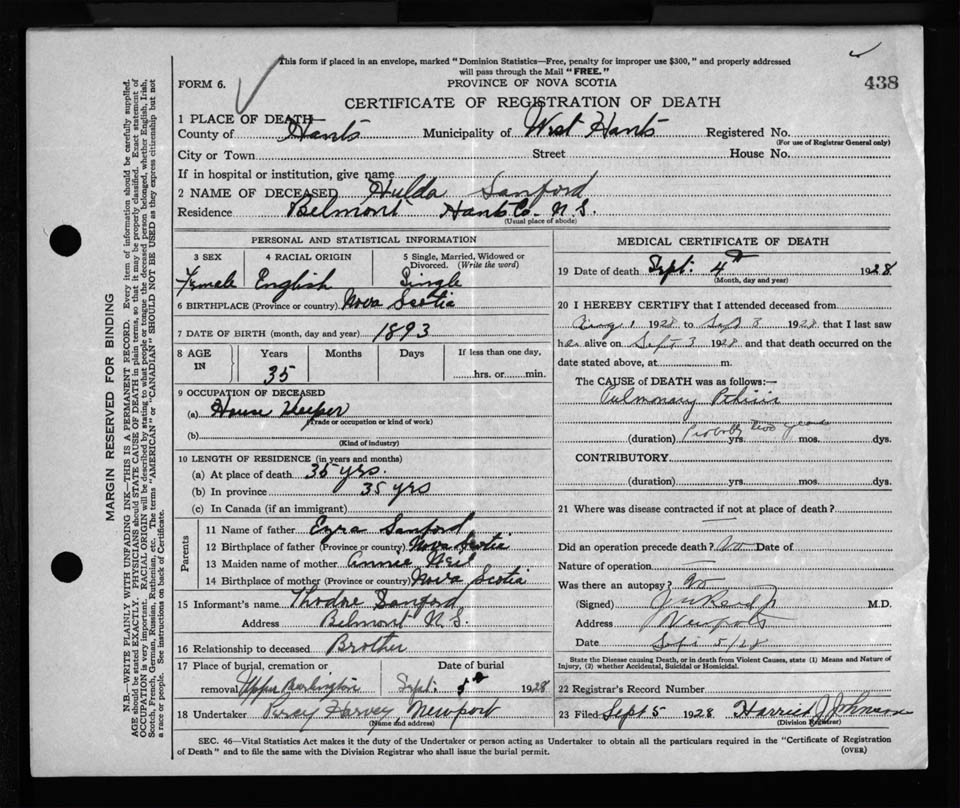 This form if placed in an envelope, marked "Dominion Statistics—Free, penalty for improper use $300," and properly addressed
will pass through the Mail "FREE."
438
FORM 6.
PROVINCE OF NOVA SCOTIA
CERTIFICATE OF REGISTRATION OF DEATH
1 PLACE OF DEATH—
County of Hants Municipality of West Hants Registered No.
(For use of Registrar General only)
City or Town Street House No.
If in hospital or institution, give name
2 NAME OF DECEASED Hulda Sanford
Residence Belmont Hants Co. N.S.
(Usual place of abode)
PERSONAL AND STATISTICAL INFORMATION
3 SEX 4 RACIAL ORIGIN 5 Single, Married, Widowed or
Divorced. (Write the word)
Female English Single
6 BIRTHPLACE (Province or country) Nova Scotia
7 DATE OF BIRTH (month, day and year) 1893
8 AGE IN Years Months Days If less than one day,
35 hrs. or min.
9 OCCUPATION OF DECEASED
(a) House Keeper
(Trade or occupation or kind of work)
(b)
(Kind of industry)
10 LENGTH OF RESIDENCE (in years and months)
(a) At place of death 35 yrs.
(b) In province 35 yrs
(c) In Canada (if an immigrant)
Parents
11 Name of father Ezra Sanford
12 Birthplace of father (Province or country) Nova Scotia
13 Maiden name of mother Annie Neil
14 Birthplace of mother (Province or country) Nova Scotia
15 Informant's name Thodore Sanford
Address Belmont N.S.
16 Relationship to deceased Brother
17 Place of burial, cremation or Date of burial
removal Upper Burlington Sept. 5th 1928
18 Undertaker Percy Harvey Newport
(Name and address)
MEDICAL CERTIFICATE OF DEATH
19 Date of death Sept. 4th 1928
(Month, day and year)
20 I HEREBY CERTIFY that I attended deceased from
Aug 1 1928 to Sept 3 1928 that I last saw
her alive on Sept 3 1928 and that death occurred on the
date stated above, at m.
The CAUSE of DEATH was as follows:—
Pulmonary Pthisis
(duration) Probably two years yrs. mos. dys.
CONTRIBUTORY
(duration) yrs. mos. dys.
21 Where was disease contracted if not at place of death?
Did an operation precede death? No Date of
Nature of operation —
Was there an autopsy? No
(Signed) M.D.
Address Newport
Date Sept 5/28
State the Disease causing Death, or in death from Violent Causes, state (1) Means and Nature of
Injury, (2) whether Accidental, Suicidal or Homicidal.
22 Registrar's Record Number
23 Filed Sept 5 1928 Harried J Johnson
(Division Registrar)
SEC. 46—Vital Statistics Act makes it the duty of the Undertaker or person acting as Undertaker to obtain all the particulars required in the "Certificate of Registration
of Death" and to file the same with the Division Registrar who shall issue the burial permit.
(OVER)
MARGIN RESERVED FOR BINDING
N.B.—WRITE PLAINLY WITH UNFADING INK—THIS IS A PERMANENT RECORD. Every item of information should be carefully supplied.
AGE should be stated EXACTLY. PHYSICIANS should STATE CAUSE OF DEATH in plain terms, so that it may be properly classified. Exact statement of
OCCUPATION is very important. RACIAL ORIGIN will be described by stating to what people or tongue the deceased person belonged, whether English, Irish,
Scotch, French, German, Russian, Ruthenian, etc. The terms "AMERICAN" or "CANADIAN" SHOULD NOT BE USED as they express citizenship but not
a race or people. See instructions on back of Certificate.